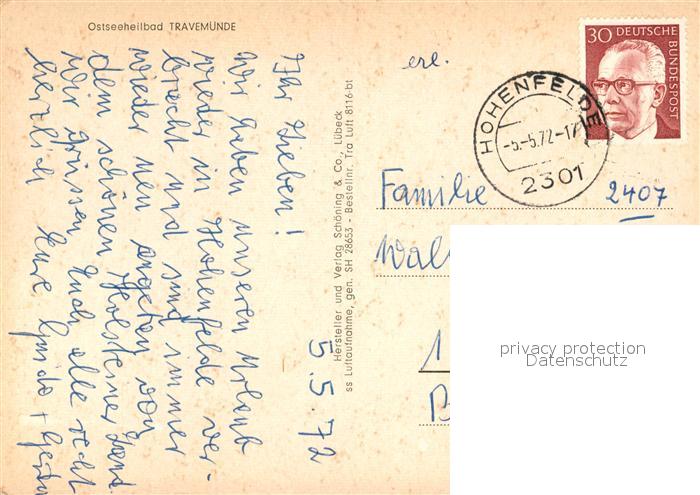 Ostseeheilbad TRAVEMÜNDE
5.5.72
Ihr Lieben!
Wir haben unseren Urlaub
wieder in Hohenfelde ver-
bracht und sind immer
wieder neu angetan von
dem schönen Holsteiner Land.
Wir grüssen Euch alle recht
herzlich Eure Guido +
Hersteller und Verlag Schöning & Co., Lübeck
ss Luftaufnahme, gen. SH 28653 - Bestellnr. Tra Luft 8116-bt
30 DEUTSCHE BUNDESPOST
HOHENFELDE
-5.-5.72-17
2301
Familie 2407
Wal
1
B
privacy protection
Datenschutz